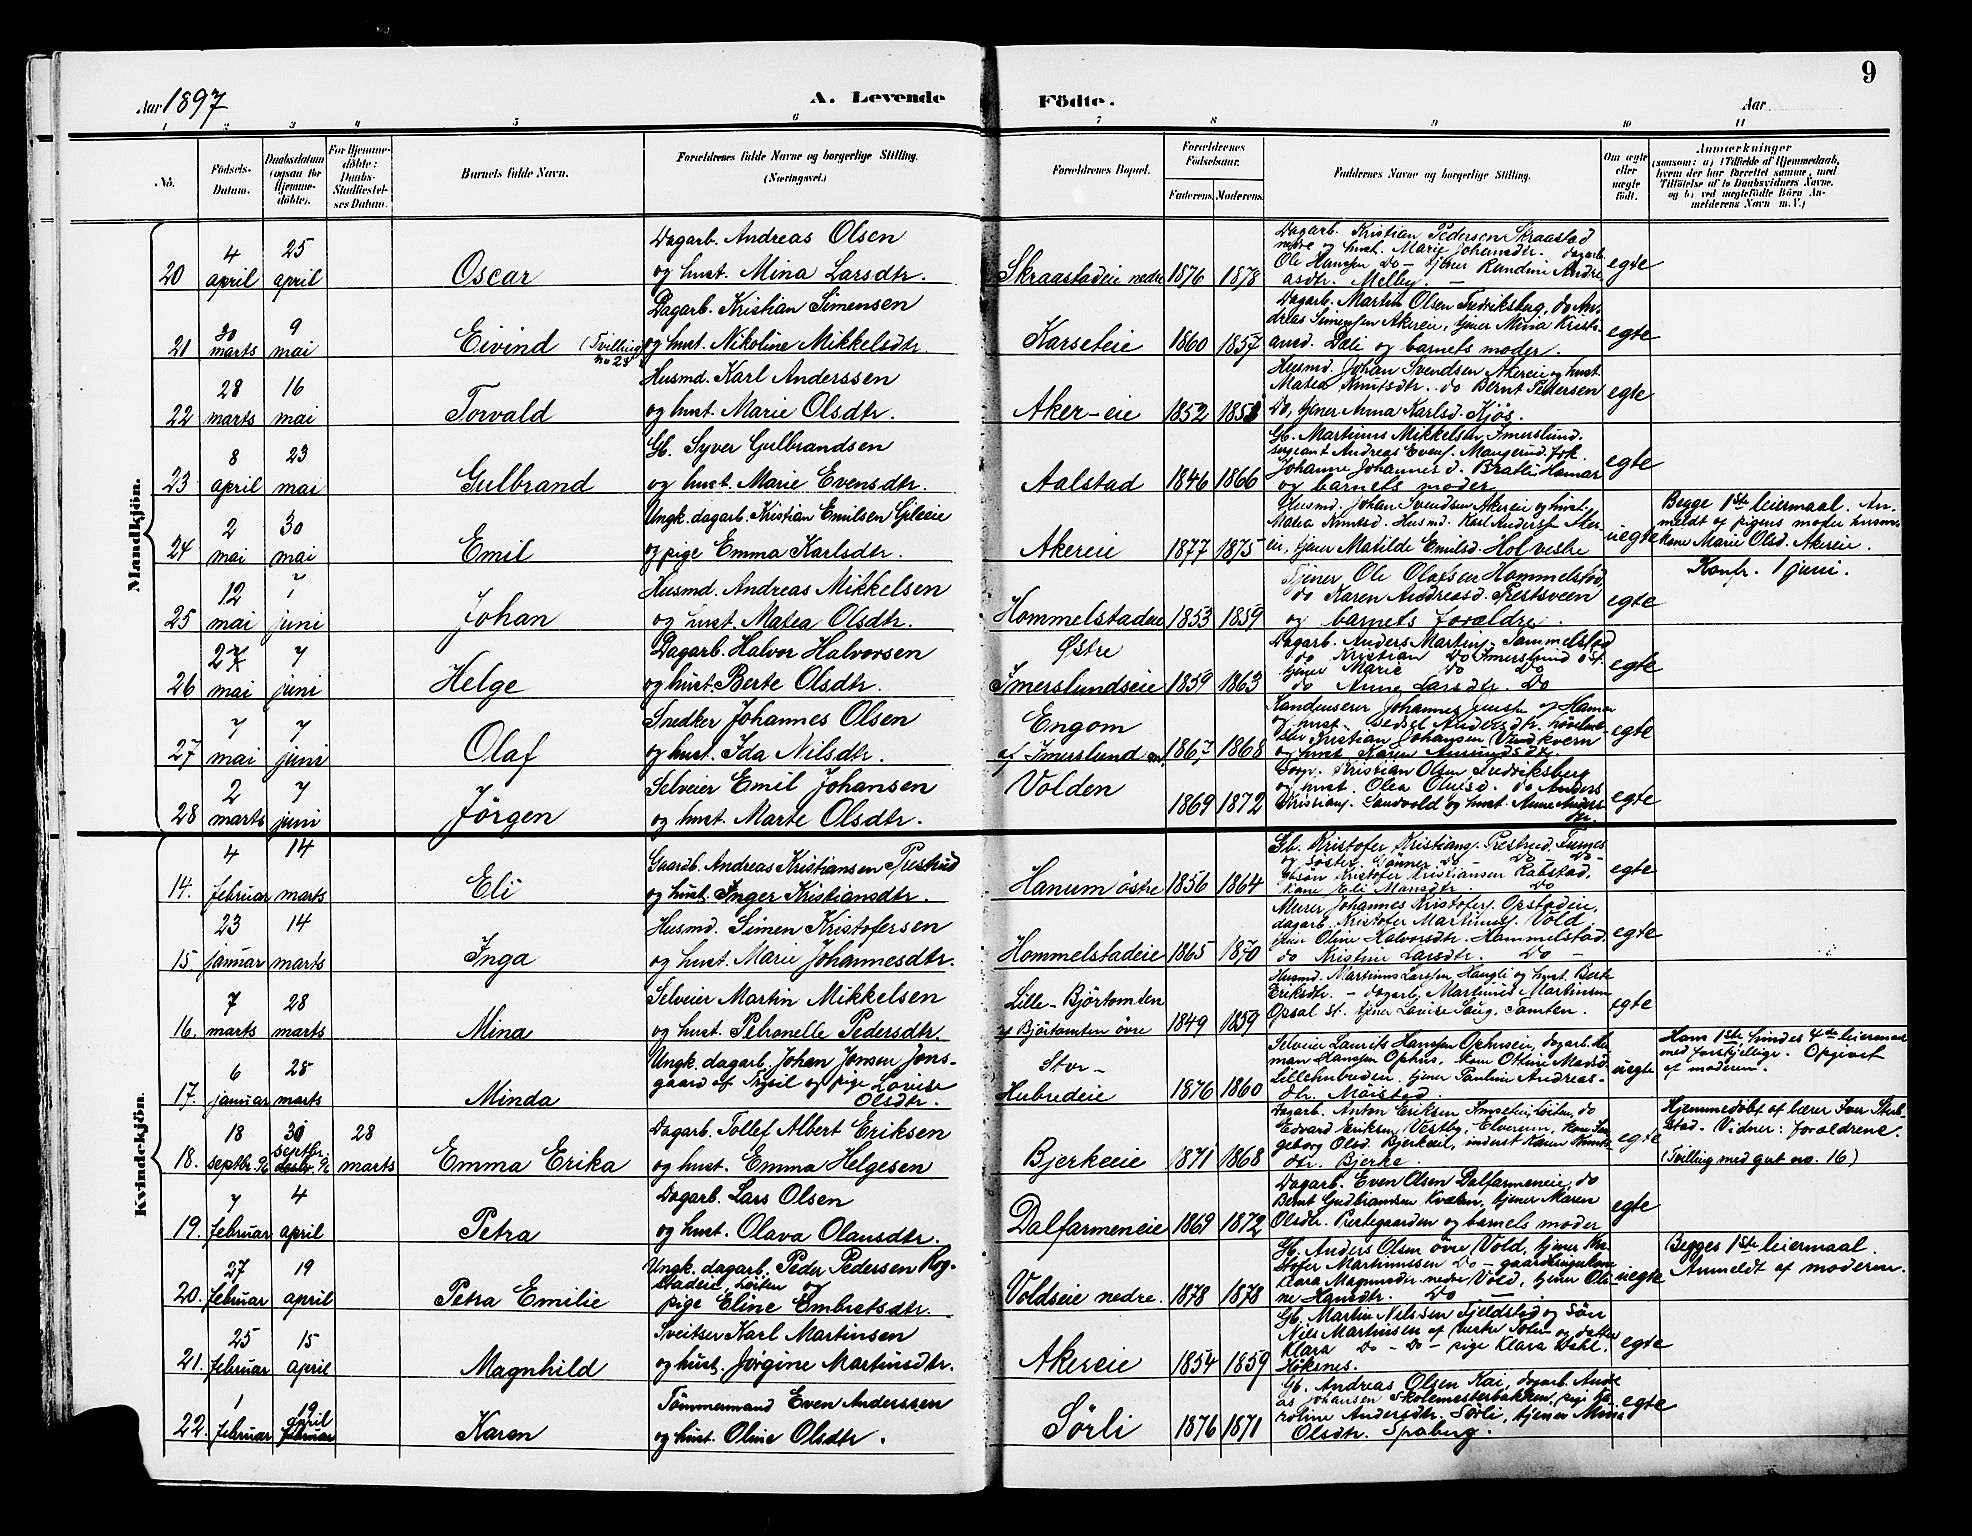 9
Aar 1897
A. Levende Födte.
Aar
1 2 3 4 5 6 7 8 9 10 11
No.
Födsels-Datum.
Daabsdatum (ogsaa for Hjemmedöbte).
For Hjemmedöbte: Daabs-Stadfæstelses Datum.
Barnets fulde Navn.
Forældrenes fulde Navne og borgerlige Stilling. (Næringsvei.)
Forældrenes Bopæl.
Forældrenes Födselsaar.
Faderens. Moderens.
Faddernes Navne og borgerlige Stilling.
Om ægte eller uægte födt.
Anmærkninger
(saasom: a) i Tilfælde af Hjemmedaab, hvem der har forrettet samme, med Tilföielse af to Daabsvidners Navne, og b) ved uægtefödte Börn Anmelderens Navn m. V.)
Mandkjön.
20 4 april 25 april Oscar
Dagarb. Andreas Olsen
og hust. Mina Larsdtr.
Skraastadeie nedre 1876 1878
Dagarb. Kristian Pedersen Skraastad
nedre og hust. Marie Johansdtr. dagarb.
Ole Hansen do – tjener Randine Andre
asdtr. Melby. –
egte
21 30 marts 9 mai Eivind (Tvilling no 28
Dagarb. Kristian Simensen
og hust. Nikoline Mikkelsdtr.
Karseteie 1860 1857
Dagarb. Martin Olsen Fredriksberg, do An-
dreas Simensen Akereie, tjener Mina Kristi-
ansd. Dæli og barnets moder.
egte
22 28 marts 16 mai Torvald
Husmd. Karl Anderssen
og hust. Marie Olsdtr.
Aker-eie 1852
Husmd. Johan Svendsen Akereie og hust.
Matea Knutsdtr. do Bernt Pedersen
Do, tjener Anna Karlsd. Kjös.
egte
23 8 april 23 mai Gulbrand
Gb. Syver Gulbrandsen
og hust. Marie Evensdtr.
Aalstad 1846 1866
Gb. Martinus Mikkelsen Imerslund.
sergeant Andreas Evens. Mangerud, frk.
Johanne Johannesd. Bratli Hamar
og barnets moder
egte
24 2 mai 30 mai Emil
Ungk. dagarb. Kristian Emilsen
og pige Emma Karlsdtr.
Akereie 1877 1875
Husmd. Johan Svendsen Akereie og hust.
Matea Knutsd. Husmd. Karl Anders. Aker-
eie, tjener Matilde Emilsd. Hol vestre
uegte
Begge 1ste leiermaal. An-
meldt og pigens moder husm.
kone Marie Olsd. Akereie.
Konfr. 1 juni.
25 12 mai 7 juni Johan
Husmd. Andreas Mikkelsen
og hust. Matea Olsdtr.
Hommelstadeie 1853 1859
Tjener Ole Olafsen Hommelstad,
do Karen Andreasd. Prestsveen
og barnets forældre.
egte
26 27 mai 7 juni Helge
Dagarb. Halvor Halvorsen
og hust. Berte Olsdtr.
Østre
Imerslundseie 1859 1863
Dagarb. Anders Martins. Sammelstad
do Kristian Do Imerslund öst.
tjener Marie Do Do
do Anne Larsdtr. Do
egte
27 7 mai 7 juni Olaf
Snedker Johannes Olsen
og hust. Ida Nilsdtr.
Engom
af Imerslund 1867 1868
Johannes af Hamar
og hust. Andersdtr.
Kristian Johansen Vindkvern
og hust. Karen Amundsdtr.
egte
28 2 marts 7 juni Jörgen
Selveier Emil Johansen
og hust. Marte Olsdtr.
Volden 1869 1872
Kristian Olsen Fredriksberg
og hust. Olea Olufsd. do Anders
Kristians. Sandvold og hust. Anne Anders
dtr.
egte
Kvindekjön.
14. 4 februar 14 marts Eli
Gaardb. Andreas Kristiansen Prestrud
og hust. Inger Kristiansdtr.
Hanum östre 1856 1864
Gb. Kristofer Kristians. Prestrud, Furnes
og söster Gunner Do – Do Do –
Kristofer Kristiansen Rabstad,
kone Eli Mansdtr. Do
egte
15. 23 januar 14 marts Inga
Husmd. Simen Kristofersen
og hust. Marie Johannesdtr.
Hommelstadeie 1865 1870
Murer Johannes Kristofers. Opstadeie,
dagarb. Kristofer Martinus. Vold
tjener Oline Halvorsdtr. Hammelstad.
do Kristine Larsdtr. Do –
egte
16. 7 marts 28 marts Mina
Selveier Martin Mikkelsen
og hust. Petronelle Pedersdtr.
Lille-Björtomden
af Björtomten övre 1849 1859
Husmd. Martinus Larsen Haugli og hust. Berte
Eriksdtr. – dagarb. Martinus Martinsen
Opsal st. tjener Lovise Saug. Tomten.
egte
17. 6 januar 28 marts Minda
Ungk. dagarb. Johan Jonsen Jons-
gaard af Trysil og pige Lovise
Olsdtr.
Stor-
Hubredeie 1876 1860
Selveier Laurits Hansen Ophuseie, dagarb. He
man Hansen Ophus, kone Ottine Madsd.
Lillehubreden, tjener Pauline Andreas-
dtr. Möistad.
uegte
Hans 1ste hendes 4de leiermaal
med forskjellige. Opgivet
af moderen.
18. 18 septbr. 96 30 septbr. 96 28 marts Emma Erika
Dagarb. Tollef Albert Eriksen
og hust. Emma Helgesen
Bjerkeeie 1871 1868
Dagarb. Anton Eriksen Löiten, do
Edvard Eriksen Vestby, Elverum, kone In-
geborg Olsd. Bjerkeeie, inderst Karen Knuts-
dtr. Bjerke
egte
Hjemmedöbt af lærer Iver Stub-
stad. Vidner: forældrene.
(Tvilling med gut no. 16)
19. 7 februar 4 april Petra
Dagarb. Lars Olsen
og hust. Olava Olausdtr.
Dalfarmeneie 1869 1872
Dagarb. Even Olsen Dalfarmeneie, do
Bernt Gudbrandsen Kvæken, tjener Maren
Olsdtr. Prestegaarden og barnets moder
egte
20. 27 februar 19 april Petra Emilie
Ungk. dagarb. Peder Pedersen Rog-
stadeie, Löiten og
pige Eline Embretsdtr.
Voldseie nedre. 1878 1878
Gb. Anders Olsen övre Vold, tjener Kri
stofer Martinussen Do – gaardbrugerkone
Klara Magnusdtr nedre Vold, tjener Oli-
ne Hansdtr. Do –
uegte
Begges 1ste leiermaal.
Anmeldt af moderen.
21. 25 februar 15 april Magnhild
Sveitser Karl Martinsen
og hust. Jörgine Martinsdtr.
Akereie 1854 1859
Gb. Martin Nilssen Fjeldstad og sön
Nils Martinsen af og datter
Klara Do – Do – pige Klara Dahl.
Höksnes.
egte
22. 1 februar 19 april Karen
Tömmermand Even Anderssen
og hust. Oline Olsdtr.
Sörli 1876 1871
Gb. Andreas Olsen Kai, dagarb. Andre
as Johansen Skolemesterbakken, pige Ka
roline Andersdtr. Sörli, tjener Mina
Olsdtr. Spaberg.
egte